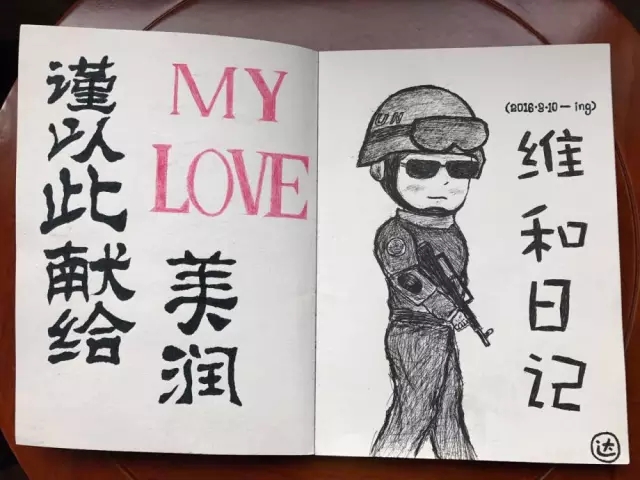 谨以此献给
MY
LOVE
美润
UN
(2016·9·10－ing)
维和日记
达